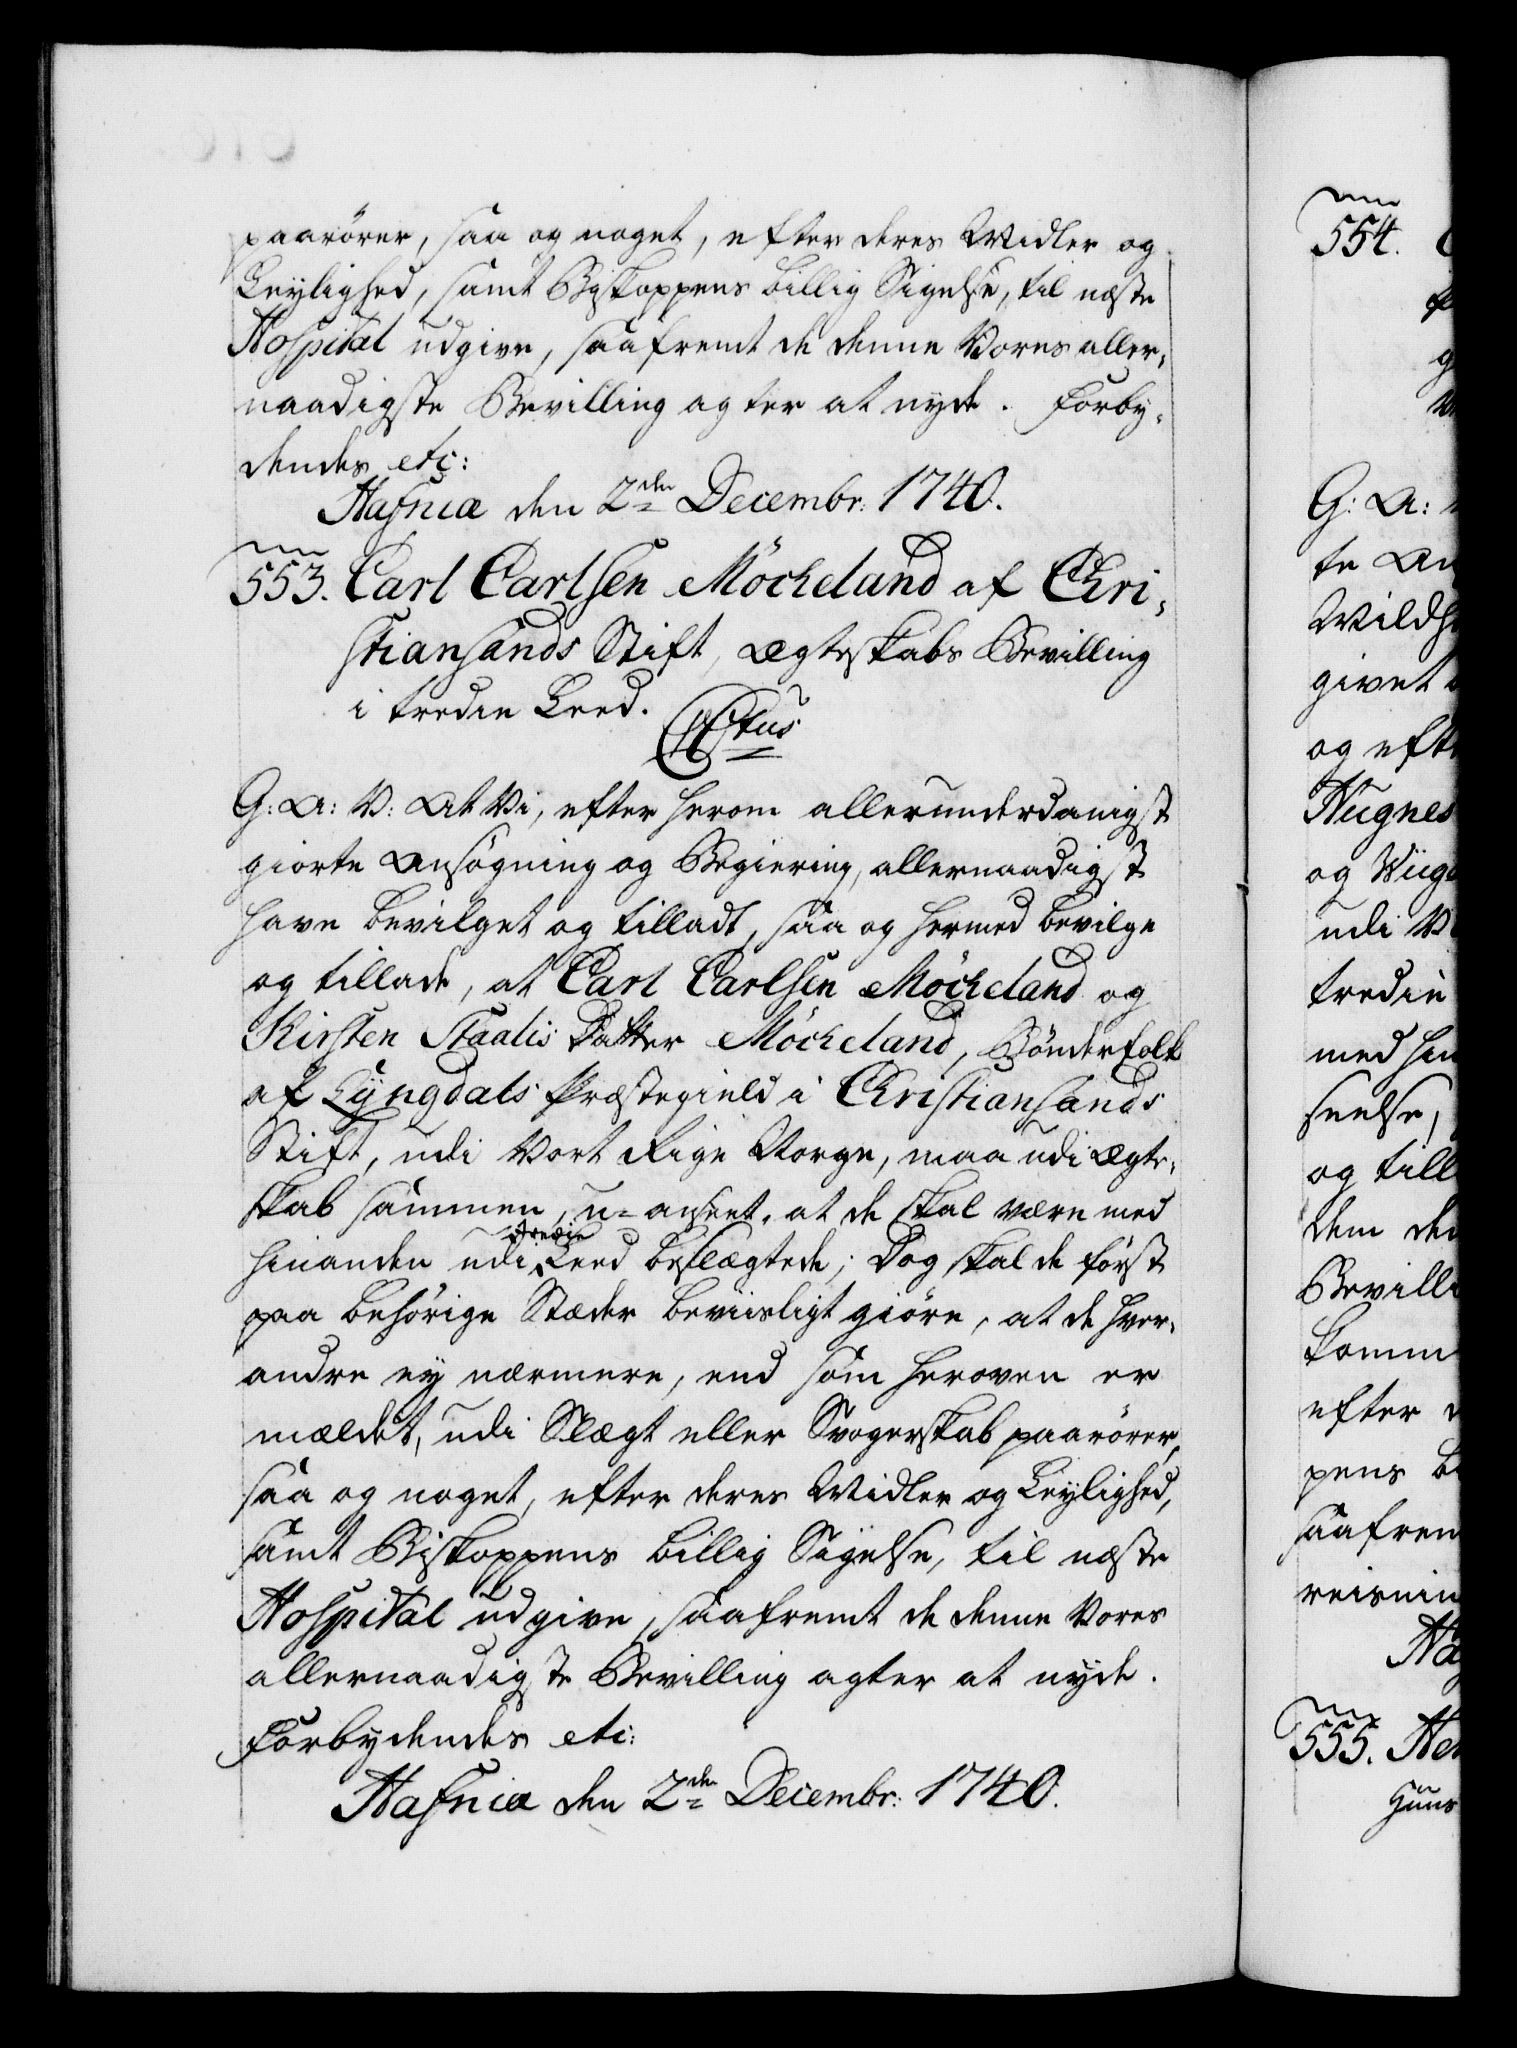 paarörer, saa og noget, efter deres Midler og
Leylighed, samt Biskoppens billig Sigelse, til næste
Hospital udgive, saafremt de denne Vores aller-
naadigste Bevilling agter at nyde. Forby-
dendes etc:
Hafniæ den 2den Decembr: 1740.
553. Carl Carlsen Möcheland af Chri-
stiansands Stift, Ægteskabs Bevilling
i tredie Leed.
Actus
G: A: V: At Vi, efter herom allerunderdanigst
giorte Ansögning og Begiering, allernaadigst
have bevilget og tilladt, saa og hermed bevilge
og tillade, at Carl Carlsen Möcheland og
Kirsten Staalis Datter Möcheland, Bönderfolk
af Lyngdals Præstegield i Christiansands
Stift, udi Vort Rige Norge, maa udi Ægte-
skab sammen, u-anseet, at de skal være med
hinanden udi tredie Leed beslægtede; Dog skal de först
paa behörige Stæder beviisligt giöre, at de hver-
andre ey nærmere, end som heroven er
meldet, udi Slægt eller Svogerskab paarörer,
saa og noget, efter deres Midler og Leylighed,
samt Biskoppens billig Sigelse, til næste
Hospital udgive, saafremt de denne Vores
allernaadigste Bevilling agter at nyde.
Forbydendes etc:
Hafniæ den 2den Decembr: 1740.
554.
G: A:
te An
Wildh
givet
og eft
Hugnes
og Viig
udi V
tredie
med hin
seelse,
og till
dem de
Bevilli
komm
efter d
pens b
saafrem
reisnin
Ha
555. He
Huus